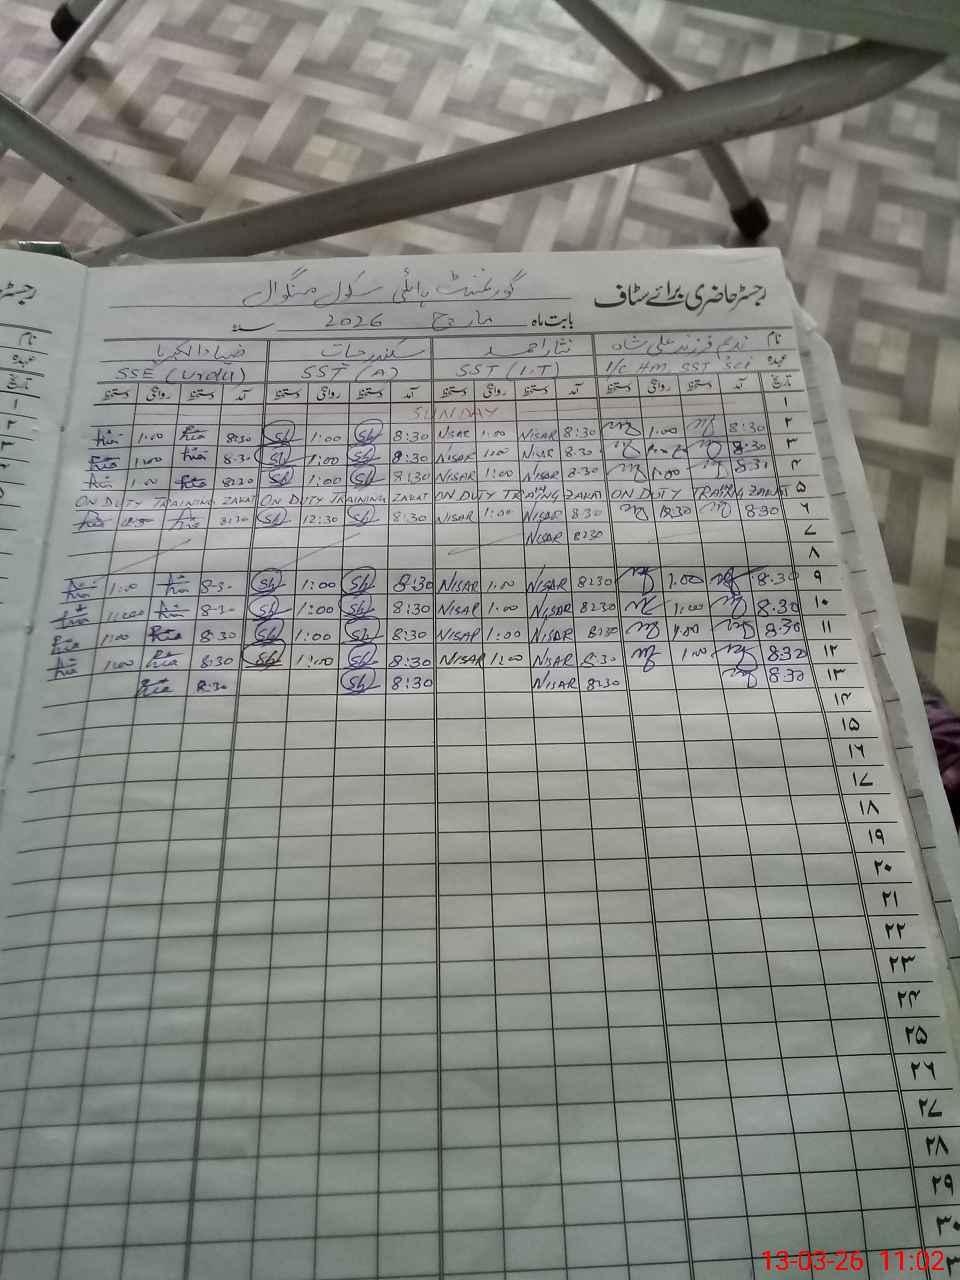 رجسٹر حاضری برائے سٹاف گورنمنٹ ہائی سکول منگوال
بابت ماہ مارچ 2026 سنہ
نام ندیم فرزند علی شاہ نثار احمد سکندر حیات ضیاء الکبریا
عہدہ I/C HM SST Sci SST (I.T) SST (A) SSE (Urdu)
تاریخ آمد دستخط روانگی دستخط آمد دستخط روانگی دستخط آمد دستخط روانگی دستخط آمد دستخط روانگی دستخط
۱ SUNDAY
۲ 8:30 1:00 8:30 NISAR 1:00 NISAR 8:30 Sh 1:00 Sh 8:30 Zia 1:00 Zia
۳ 8:30 8:30 NISAR 1:00 NISAR 8:30 Sh 1:00 Sh 8:30 Zia 1:00 Zia
۴ 8:30 1:00 8:30 NISAR 1:00 NISAR 8:30 Sh 1:00 Sh 8:30 Zia 1:00 Zia
۵ ON DUTY TRAINING ZAKAT ON DUTY TRAINING ZAKAT ON DUTY TRAINING ZAKAT ON DUTY TRAINING ZAKAT
۶ 8:30 12:30 8:30 NISAR 1:00 NISAR 8:30 Sh 12:30 Sh 8:30 Zia 12:30 Zia
۷ 8:30 NISAR
۸
۹ 8:30 1:00 8:30 NISAR 1:00 NISAR 8:30 Sh 1:00 Sh 8:30 Zia 1:00 Zia
۱۰ 8:30 1:00 8:30 NISAR 1:00 NISAR 8:30 Sh 1:00 Sh 8:30 Zia 1:00 Zia
۱۱ 8:30 1:00 8:30 NISAR 1:00 NISAR 8:30 Sh 1:00 Sh 8:30 Zia 1:00 Zia
۱۲ 8:30 1:00 8:30 NISAR 1:00 NISAR 8:30 Sh 1:00 Sh 8:30 Zia 1:00 Zia
۱۳ 8:30 8:30 NISAR 8:30 Sh 8:30 Zia
۱۴
۱۵
۱۶
۱۷
۱۸
۱۹
۲۰
۲۱
۲۲
۲۳
۲۴
۲۵
۲۶
۲۷
۲۸
۲۹
۳۰
13-03-26 11:02